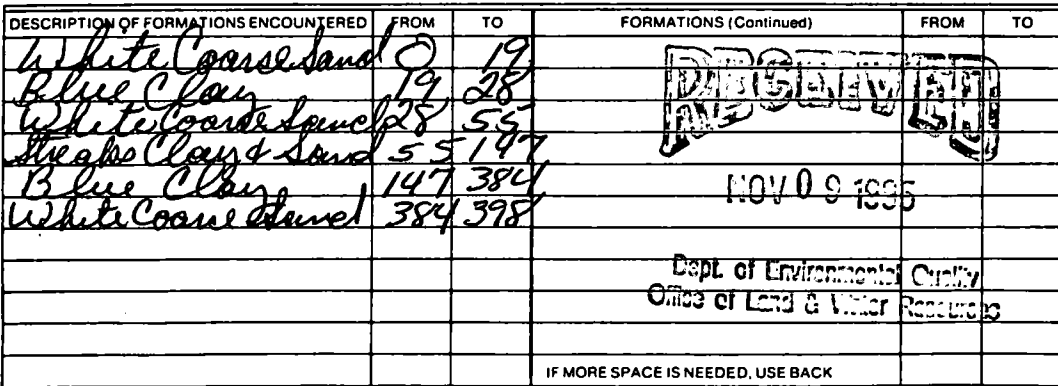 DESCRIPTION OF FORMATIONS ENCOUNTERED FROM TO FORMATIONS (Continued) FROM TO
White Coarse Sand 0 19
Blue Clay 19 28
White Coarse Sand 28 55
Streaks Clay & Sand 55 147
Blue Clay 147 384
White Coarse Sand 384 398
RECEIVED
NOV 09 1995
Dept. of Environmental Quality
Office of Land & Water Resources
IF MORE SPACE IS NEEDED, USE BACK